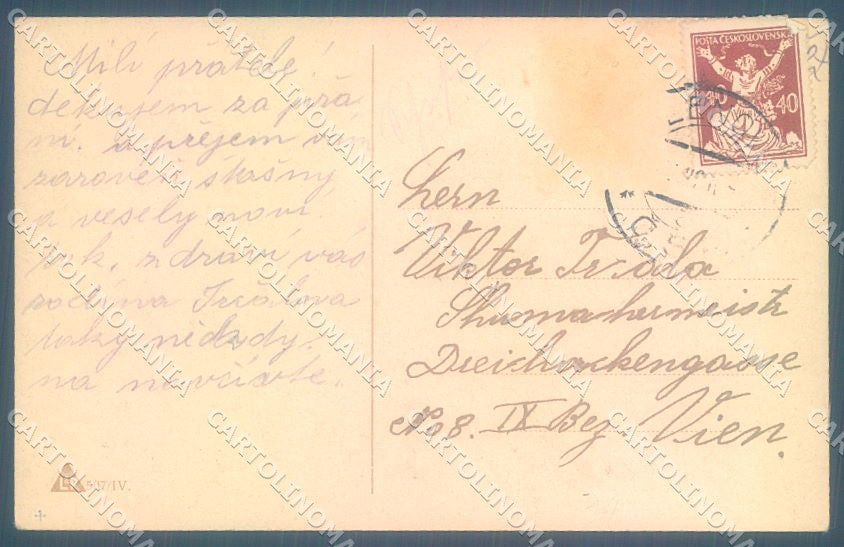 Milí přátelé!
děkujem za přá
ní. a přejem vám
zároveň štastný
a vesely noví
rok. zdraví vás
rodina
taky někdy.
na navčivte.
POSTA ČESKOSLOVENSK
40
Herr
Viktor
Shumahermeistr
Dreihackengasse
No 8. IX Bez Vien.
5/17/IV.
CARTOLINOMANIA